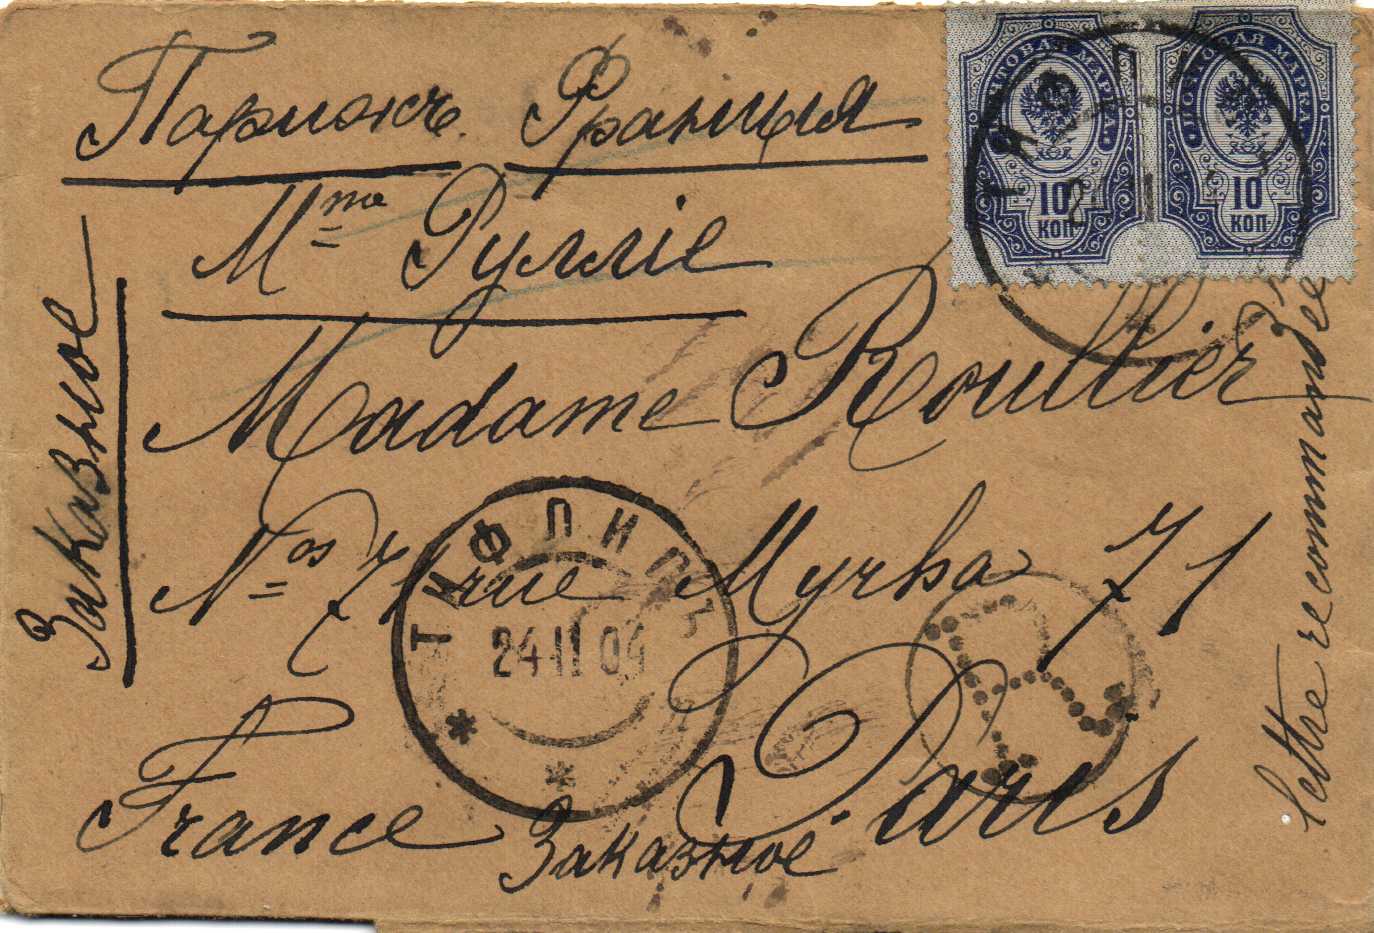 Парижъ. Франция
Mme Рулліе
Madame Roullier
Nos 71 rue Myrha 71
France Paris
Заказное
Заказное
lettre recommandée
ПОЧТОВАЯ МАРКА
10
КОП
ПОЧТОВАЯ МАРКА
10
КОП
ТИФЛИСЪ
24 II 04
R